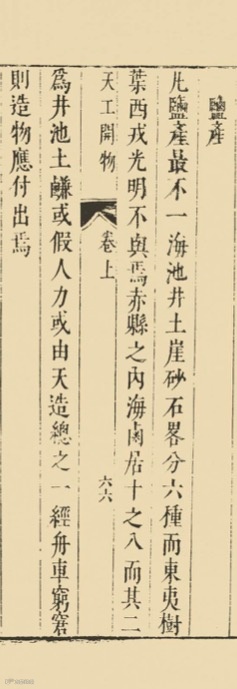 鹽產
凡鹽產最不一海池井土崖砂石畧分六種而東夷樹
葉西戎光明不與焉赤縣之內海鹵居十之八而其二
天工開物 卷上 六六
為井池土鹻或假人力或由天造總之一經舟車窮窘
則造物應付出焉